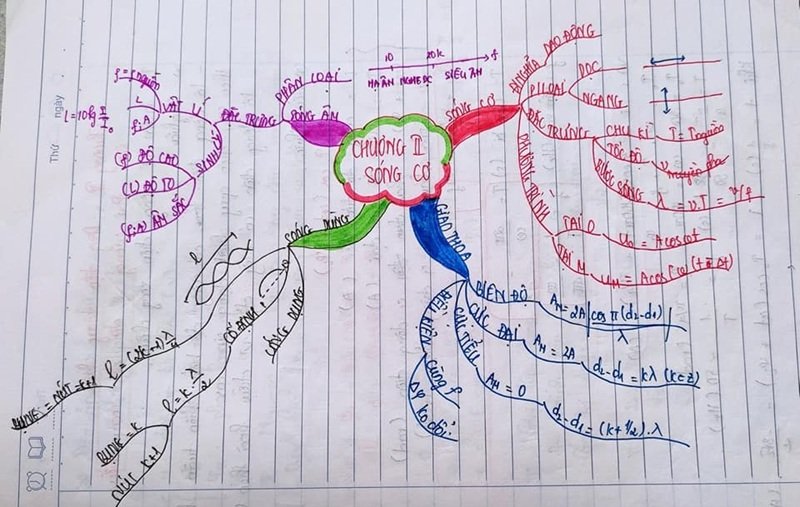 CHƯƠNG II
SÓNG CƠ
SÓNG CƠ
ĐỊNH NGHĨA DAO ĐỘNG
P.LOẠI
DỌC
NGANG
ĐẶC TRƯNG
CHU KÌ
T = Tnguồn
TỐC ĐỘ
v truyền sóng
BƯỚC SÓNG
λ = v.T = v/f
PHƯƠNG TRÌNH
TẠI O
u₀ = Acosωt
TẠI M
GIAO THOA
BIÊN ĐỘ
A_M = 2A |cos π(d₂-d₁)/λ|
CỰC ĐẠI
A_M = 2A
d₂-d₁ = kλ (k∈Z)
CỰC TIỂU
A_M = 0
d₂-d₁ = (k+1/2).λ
ĐIỀU KIỆN
cùng f
Δφ ko đổi
SÓNG DỪNG
l
l = (2k+1) λ/4
BỤNG = NÚT = k+1
CỐ ĐỊNH
l = k.λ/2
BỤNG = k
NÚT k+1
ỨNG DỤNG
SÓNG ÂM
PHÂN LOẠI
10
20k
f
HẠ ÂM
NGHE ĐC
SIÊU ÂM
ĐẶC TRƯNG
VẬT LÍ
f = f nguồn
L
L = 10lg I/I₀
f;A
SINH LÍ
(f) ĐỘ CAO
(L) ĐỘ TO
(f;A) ÂM SẮC
Thứ
ngày